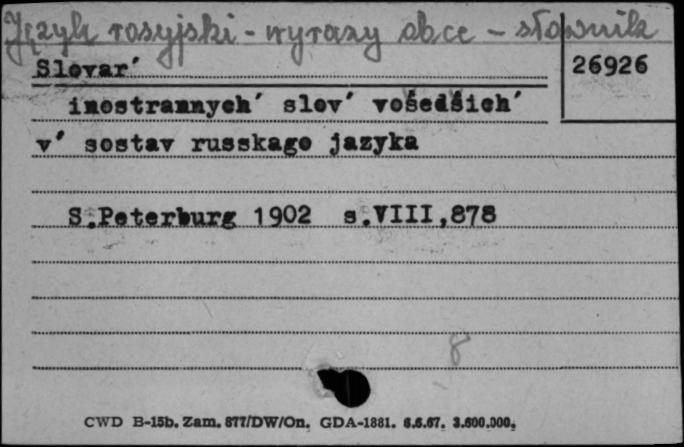 Język rosyjski - wyrazy obce - słownik
Slovar′
26926
inostrannych′ slov′ vošedšich′
v′ sostav russkago jazyka
S.Peterburg 1902 s.VIII,878
8
CWD B-15b. Zam. 877/DW/On. GDA-1881. 6.6.67. 3.600.000.